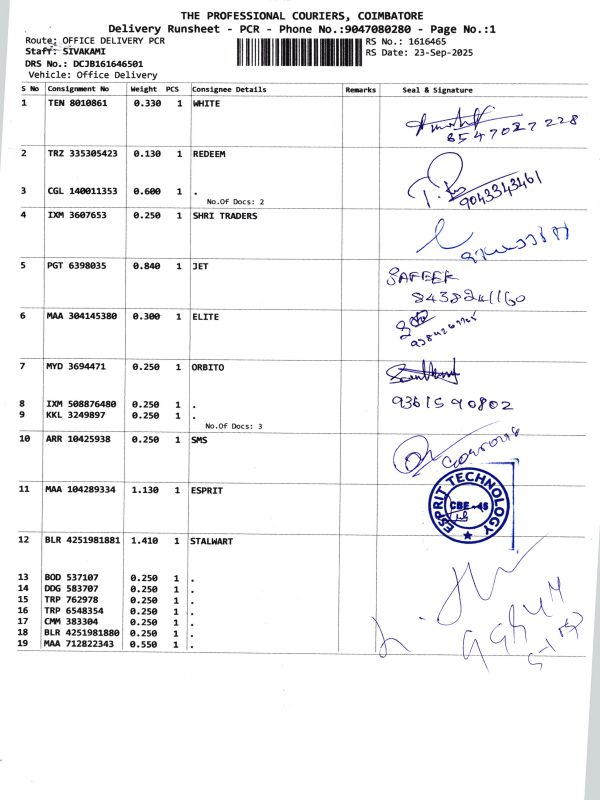 THE PROFESSIONAL COURIERS, COIMBATORE
Delivery Runsheet - PCR - Phone No.:9047080280 - Page No.:1
Route: OFFICE DELIVERY PCR
RS No.: 1616465
Staff: SIVAKAMI
RS Date: 23-Sep-2025
DRS No.: DCJB161646501
Vehicle: Office Delivery
S No Consignment No Weight PCS Consignee Details Remarks Seal & Signature
1 TEN 8010861 0.330 1 WHITE
8547027228
2 TRZ 335305423 0.130 1 REDEEM
3 CGL 140011353 0.600 1 .
9043343461
No.Of Docs: 2
4 IXM 3607653 0.250 1 SHRI TRADERS
5 PGT 6398035 0.840 1 JET
SAFEER
8438241160
6 MAA 304145380 0.300 1 ELITE
7 MYD 3694471 0.250 1 ORBITO
8 IXM 508876480 0.250 1 .
9361590802
9 KKL 3249897 0.250 1 .
No.Of Docs: 3
10 ARR 10425938 0.250 1 SMS
11 MAA 104289334 1.130 1 ESPRIT
ESPRIT TECHNOLOGY
CBE-45
12 BLR 4251981881 1.410 1 STALWART
13 BOD 537107 0.250 1 .
14 DDG 583707 0.250 1 .
15 TRP 762978 0.250 1 .
16 TRP 6548354 0.250 1 .
17 CMM 383304 0.250 1 .
18 BLR 4251981880 0.250 1 .
19 MAA 712822343 0.550 1 .